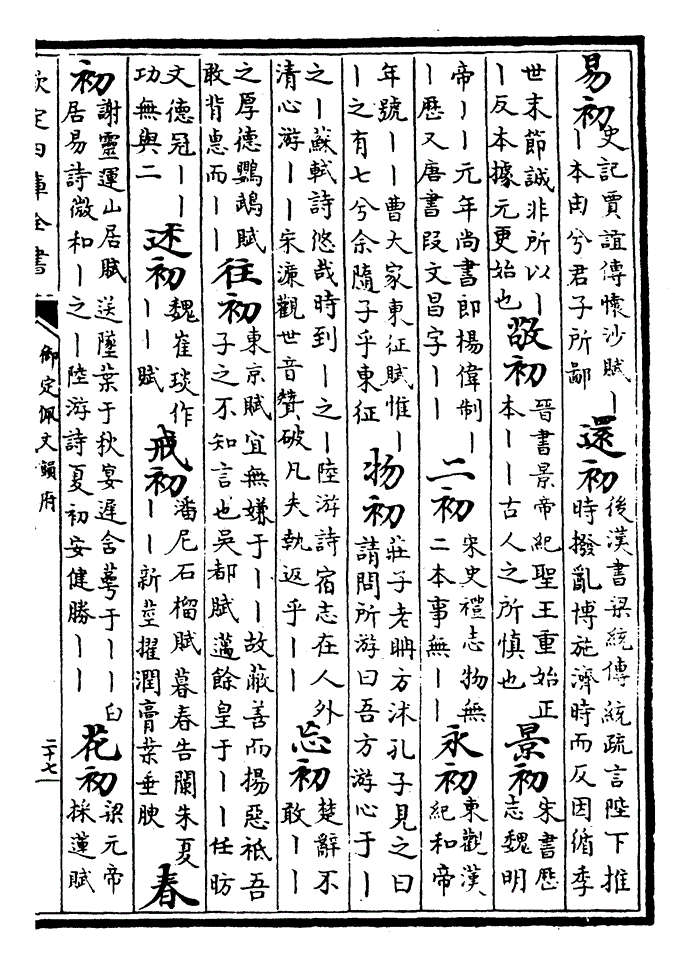 易初
史記賈誼傳懷沙賦丨
丨本由兮君子所鄙
還初
後漢書梁統傳統疏言陛下推
時撥亂博施濟時而反因循季
世末節誠非所以丨
丨反本據元更始也
敬初
晉書景帝紀聖王重始正
本丨丨古人之所慎也
景初
宋書歷
志魏明
帝丨丨元年尚書郎楊偉制丨
丨歷又唐書段文昌字丨丨
二初
宋史禮志物無
二本事無丨丨
永初
東觀漢
紀和帝
年號丨丨曹大家東征賦惟丨
丨之有七兮余隨子乎東征
物初
莊子老聃方沐孔子見之曰
請問所游曰吾方游心于丨
之丨蘇軾詩悠哉時到丨之丨陸游詩宿志在人外
清心游丨丨宋濂觀世音贊破凡夫執返乎丨丨
忘初
楚辭不
敢丨丨
之厚德鸚鵡賦
敢背惠而丨丨
往初
東京賦宜無嫌于丨丨故蔽善而揚惡祗吾
子之不知言也吳都賦邁餘皇于丨丨任昉
文德冠丨丨
功無與二
述初
魏崔琰作
丨丨賦
戒初
潘尼石榴賦暮春告闌朱夏
丨丨新莖擢潤膏葉垂腴
春
初
謝靈運山居賦送墜葉于秋宴遲含萼于丨丨白
居易詩微和丨之丨陸游詩夏初安健勝丨丨
花初
梁元帝
採蓮賦
欽定四庫全書
御定佩文韻府
二十七